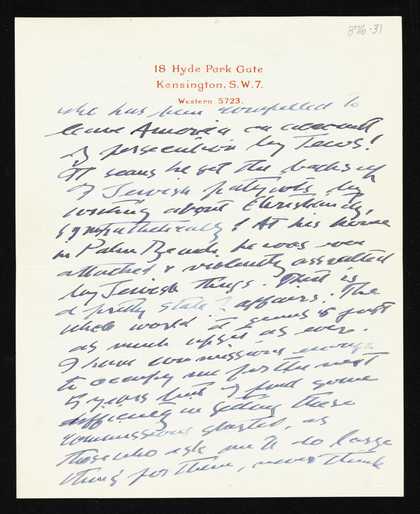 876-31
18 Hyde Park Gate
Kensington, S.W.7.
Western 5723.
who has been compelled to
leave America on account
of persecution by Jews!
It seems he got the backs up
of Jewish by
writing about Christianity,
sympathetically! At his home
in Palm Beach, he was even
attacked & violently assaulted
by Jewish thugs. This is
a pretty state of affairs. The
whole world it seems is just
as much upset as ever.
I have commissions enough
to occupy me for the next
5 years but I find some
difficulty in getting these
commissions started, as
those who ask me to do large
things for them, never think